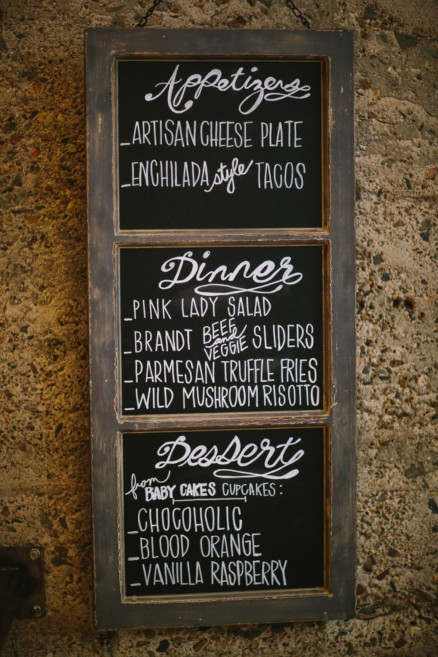 Appetizers
_ARTISAN CHEESE PLATE
_ENCHILADA style TACOS
Dinner
_PINK LADY SALAD
_BRANDT BEEF and VEGGIE SLIDERS
_PARMESAN TRUFFLE FRIES
_WILD MUSHROOM RISOTTO
Dessert
from BABY CAKES CUPCAKES:
_CHOCOHOLIC
_BLOOD ORANGE
_VANILLA RASPBERRY